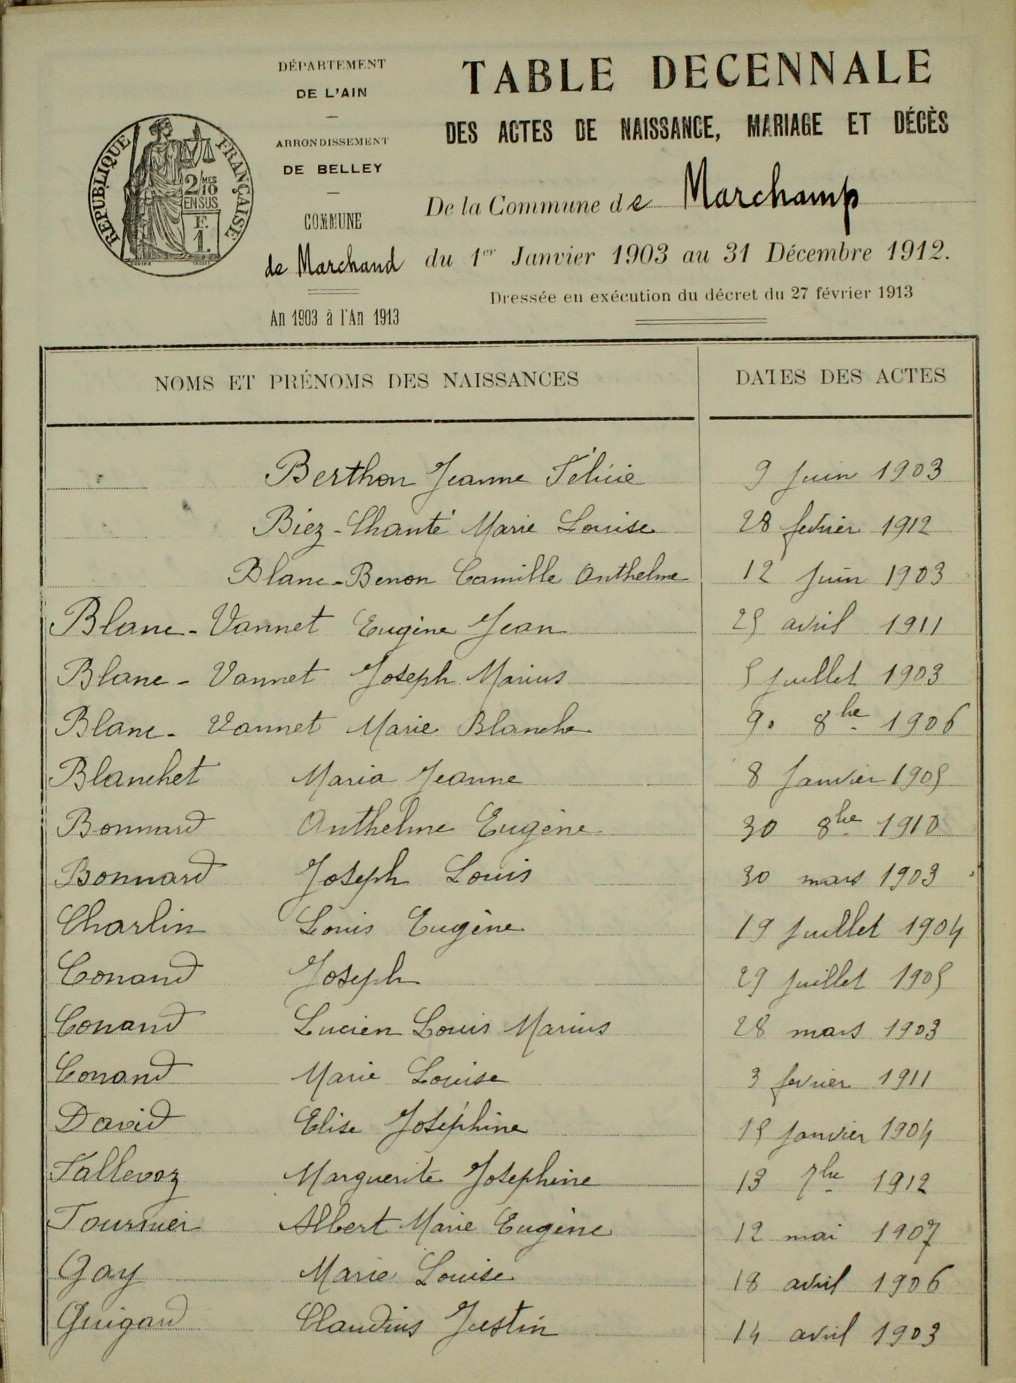 DÉPARTEMENT
DE L'AIN
ARRONDISSEMENT
DE BELLEY
COMMUNE
de Marchand
An 1903 à l'An 1913
RÉPUBLIQUE FRANÇAISE
2/10 MES
EN SUS
F.
1.
TABLE DECENNALE
DES ACTES DE NAISSANCE, MARIAGE ET DÉCÈS
De la Commune de Marchamp
du 1er Janvier 1903 au 31 Décembre 1912.
Dressée en exécution du décret du 27 février 1913
NOMS ET PRÉNOMS DES NAISSANCES DATES DES ACTES
Berthon Jeanne Félicie 9 juin 1903
Biez-Chanté Marie Louise 28 fevrier 1912
Blanc-Benon Camille Anthelme 12 juin 1903
Blanc-Vannet Eugène Jean 25 avril 1911
Blanc-Vannet Joseph Marius 5 juillet 1903
Blanc-Vannet Marie Blanche 9. 8bre 1906
Blanchet Maria Jeanne 8 janvier 1905
Bonnard Anthelme Eugène 30 8bre 1910
Bonnard Joseph Louis 30 mars 1903
Charlin Louis Eugène 19 juillet 1904
Conand Joseph 29 juillet 1905
Conand Lucien Louis Marius 28 mars 1903
Conand Marie Louise 3 fevrier 1911
David Elise Joséphine 15 janvier 1904
Fallevoz Marguerite Josephine 13 7bre 1912
Fournier Albert Marie Eugène 12 mai 1907
Gay Marie Louise 18 avril 1906
Guigard Claudius Justin 14 avril 1903